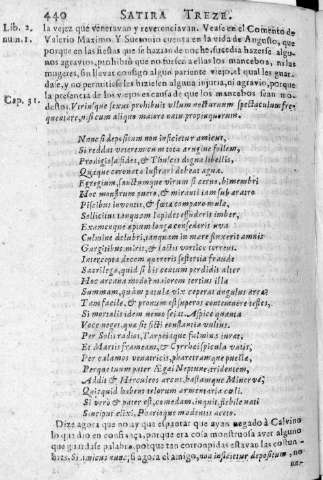 440 SATIRA TREZE.
Lib. 2. la vejez què veneravan y reverenciavan. Vease en el Comento de
num. 1. Valerio Maximo. Y Suetonio cuenta en la vida de Augusto, que
porque en las fiestas que se hazian de noche, sucedia hazerse algunos
agravios, prohibiò que no fuessen a ellas los mancebos, ni las
mugeres, sin llevar consigo algun pariente viejo, el qual les guardasse,
y no permitiesse les hiziessen alguna injuria, ni agravio, porque
Cap. 31. la presencia de los viejos es causa de que los mancebos sean modestos.
Utriusque sexus prohibuit ullum nocturnum spectaculum frequentare,
nisi cum aliquo maiore natu propinquorum.
Nunc si depositum non inficietur amicus,
Si reddat veterem cum tota ærugine follem,
Prodigiosa fides, & Thuscis digna libellis,
Quæque coronata lustrari debeat agna.
Egregium, sanctumque virum si cerno, bimembri
Hoc monstrum puero, & miranti iam sub aratro
Piscibus inventis, & fœtæ comparo mulæ,
Sollicitus tanquam lapides effuderit imber,
Examenque apum longa consederit uva
Culmine delubri, tanquam in mare fluxerit amnis
Gurgitibus miris, & lactis vortice torrens.
Intercepta decem quereris sestertia fraude
Sacrilega, quid si bis centum perdidit alter
Hoc arcana modo? maiorem tertius illa
Summam, quam patulæ vix ceperat angulus arcæ?
Tam facile, & pronum est superos contemnere testes,
Si mortalis idem nemo sciat. Aspice quanta
Voce neget, quæ sit ficti constantia vultus.
Per Solis radios, Tarpeiaque fulmina iurat,
Et Martis frameam, & Cyrrhæi spicula vatis,
Per calamos venatricis, pharetramque puellæ,
Perque tuum pater Ægæi Neptune, tridentem,
Addit & Herculeos arcus, hastamque Minervæ,
Quicquid habent telorum armamentaria cœli.
Si verò & pater est, comedam, inquit, flebile nati
Sinciput elixi, Pharioque madentis aceto.
Dize agora que no ay que espantar que ayan negado à Calvino
lo que dio en confiança, porque era cosa monstruosa aver alguno
que guardasse palabra, porque tan corrompidas estavan las costumbres.
Si amicus nunc; si agora el amigo, non inficietur depositum, no